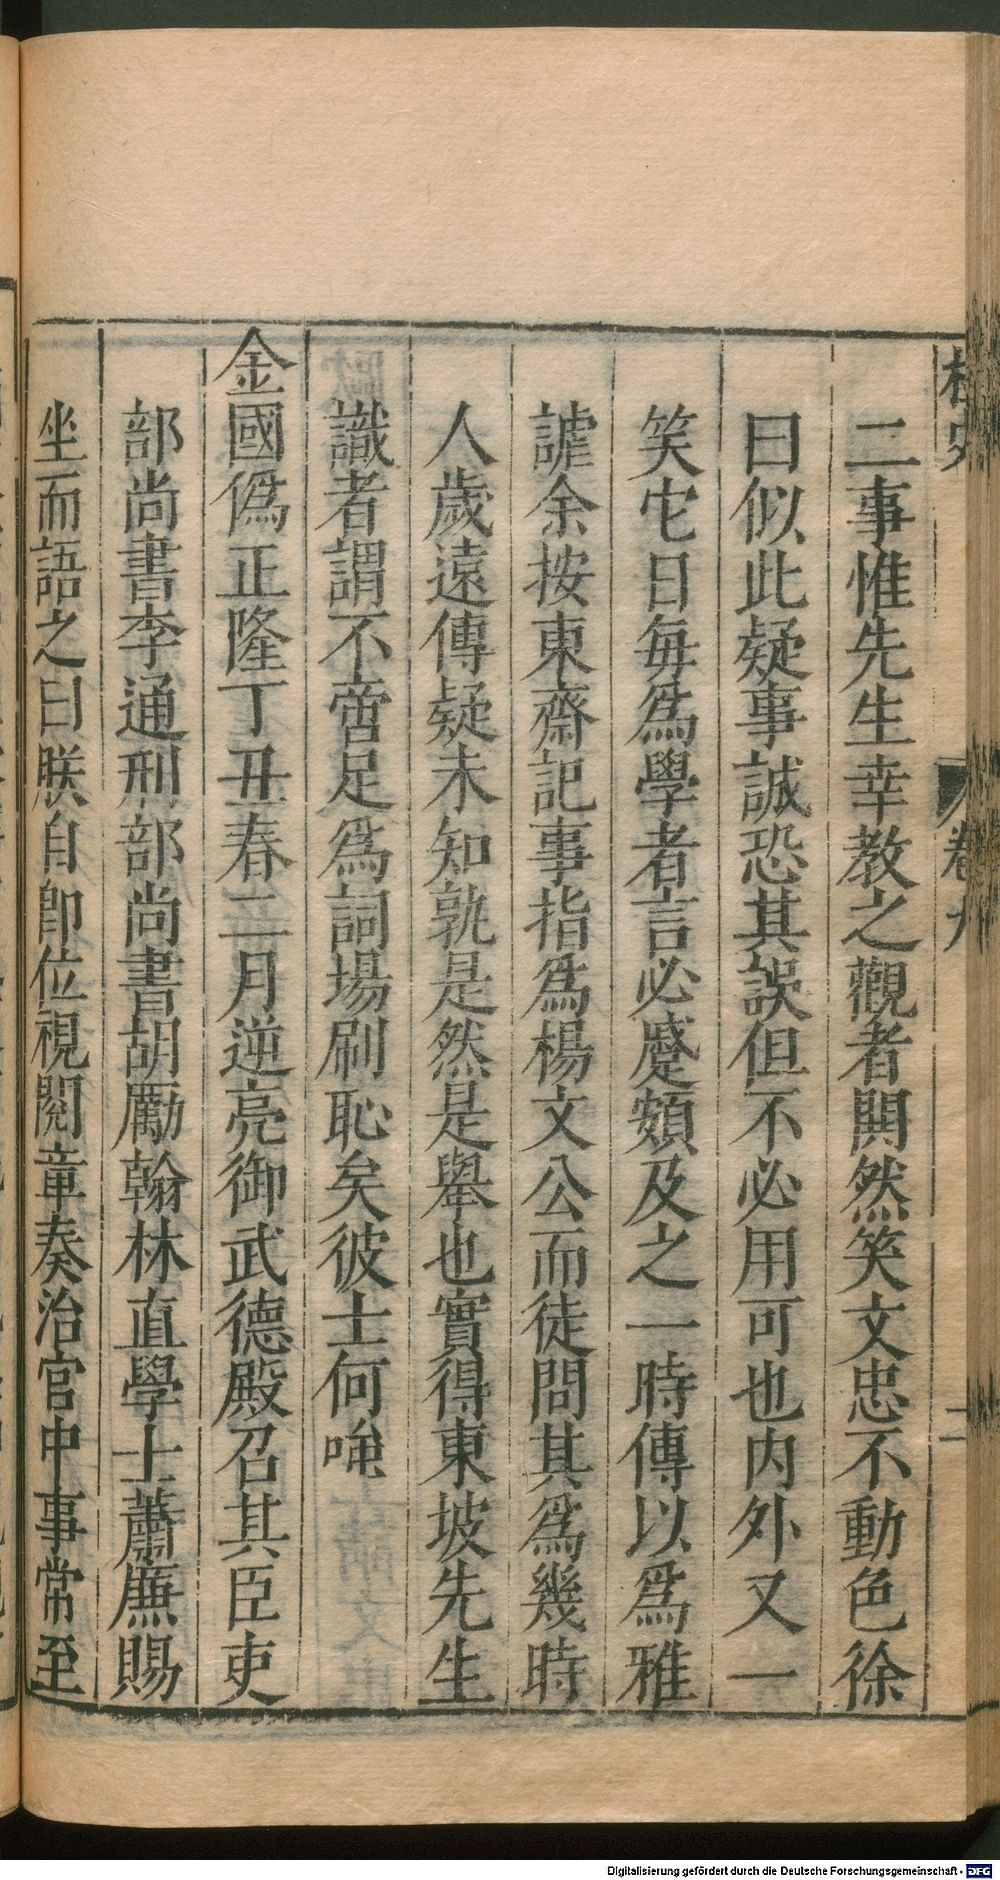 桯史 卷九 二
二事惟先生幸教之觀者閧然笑文忠不動色徐
曰似此疑事誠恐其誤但不必用可也内外又一
笑它日每爲學者言必蹙頞及之一時傳以爲雅
謔余按東齋記事指爲楊文公而徒問其爲幾時
人歲遠傳疑未知孰是然是舉也實得東坡先生
識者謂不啻足爲詞場刷恥矣彼士何唯
金國僞正隆丁丑春二月逆亮御武德殿召其臣吏
部尚書李通刑部尚書胡勵翰林直學士蕭㢘賜
坐而語之曰朕自卽位視閱章奏治宮中事常至
Digitalisierung gefördert durch die Deutsche Forschungsgemeinschaft - DFG